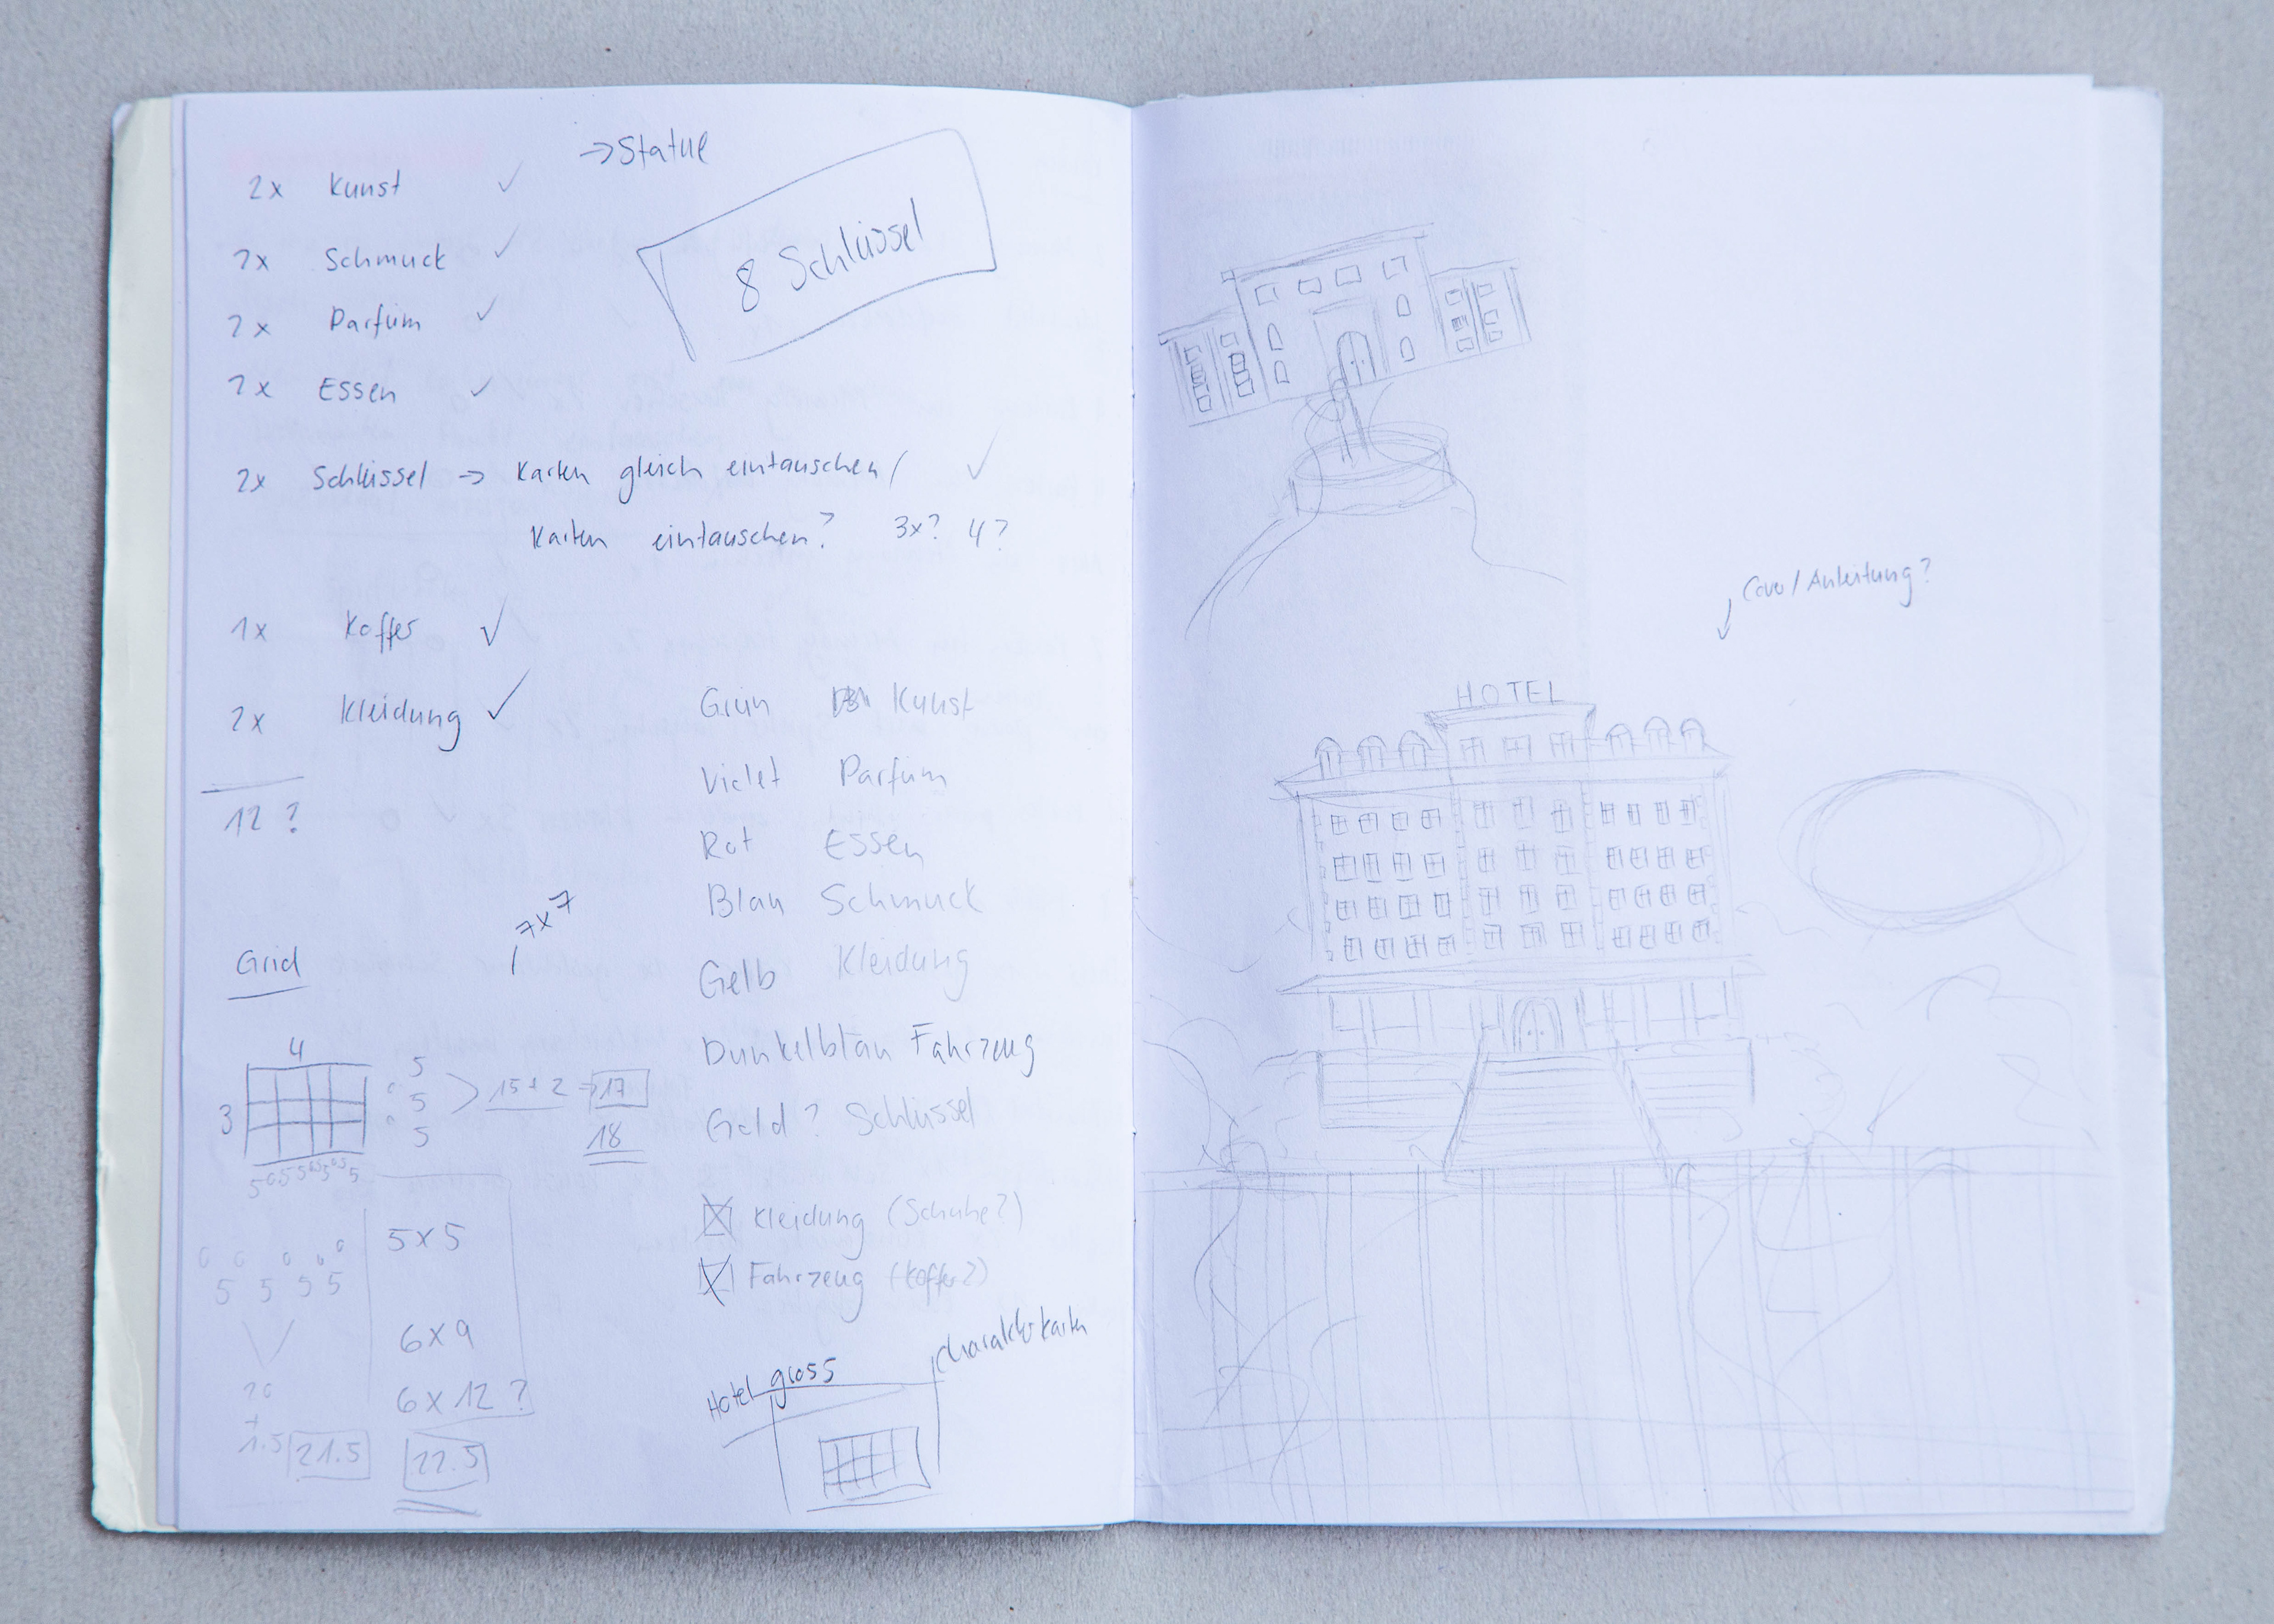 → Statue
2x Kunst ✓
8 Schlüssel
2x Schmuck ✓
2x Parfüm ✓
2x Essen ✓
2x Schlüssel → Karten gleich eintauschen /
Karten eintauschen? 3x? 4? ✓
1x Koffer ✓
2x Kleidung ✓
12 ?
Grün Kunst
Violet Parfüm
Rot Essen
Blau Schmuck
Gelb Kleidung
Dunkelblau Fahrzeug
Gold? Schlüssel
Kleidung (Schuhe?)
Fahrzeug (Koffer?)
Hotel gross
Charakterkarten
7x7
Grid
4
3
5
5
5
15 + 2 → 17
18
5 5 5 5
5x5
6x9
6x12?
20
+
1.5
21.5
22.5
Cover / Anleitung?
HOTEL